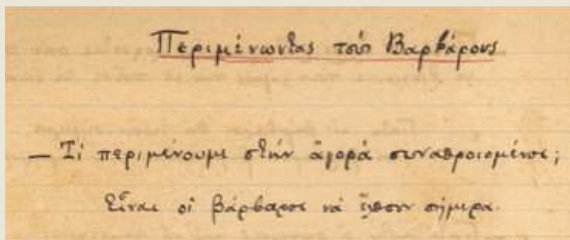 Περιμένωντας τους Βαρβάρους
— Τί περιμένουμε στὴν ἀγορὰ συναθροισμένοι;
Εἶναι οἱ βάρβαροι νὰ ἔλθουν σήμερα.